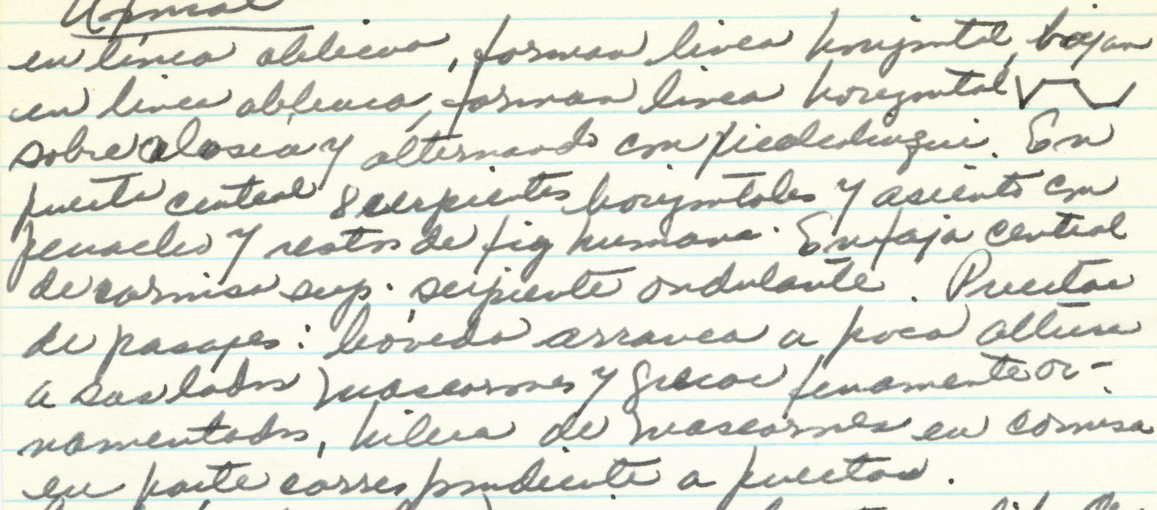 Uxmal
en línea oblicua, forman linea horizontal, bajan
en linea oblicua, forman linea horizontal
sobre celosia y alternando con
puerta central 8 serpientes horizontales y asiento con
penacho y restos de fig humana. En faja central
de cornisa sup. serpiente ondulante. Puertas
de pasajes: bóveda arranca a poca altura
a sus lados mascarones y grecas finamente or-
namentados, hilera de mascarones en cornisa
en parte correspondiente a puertas.